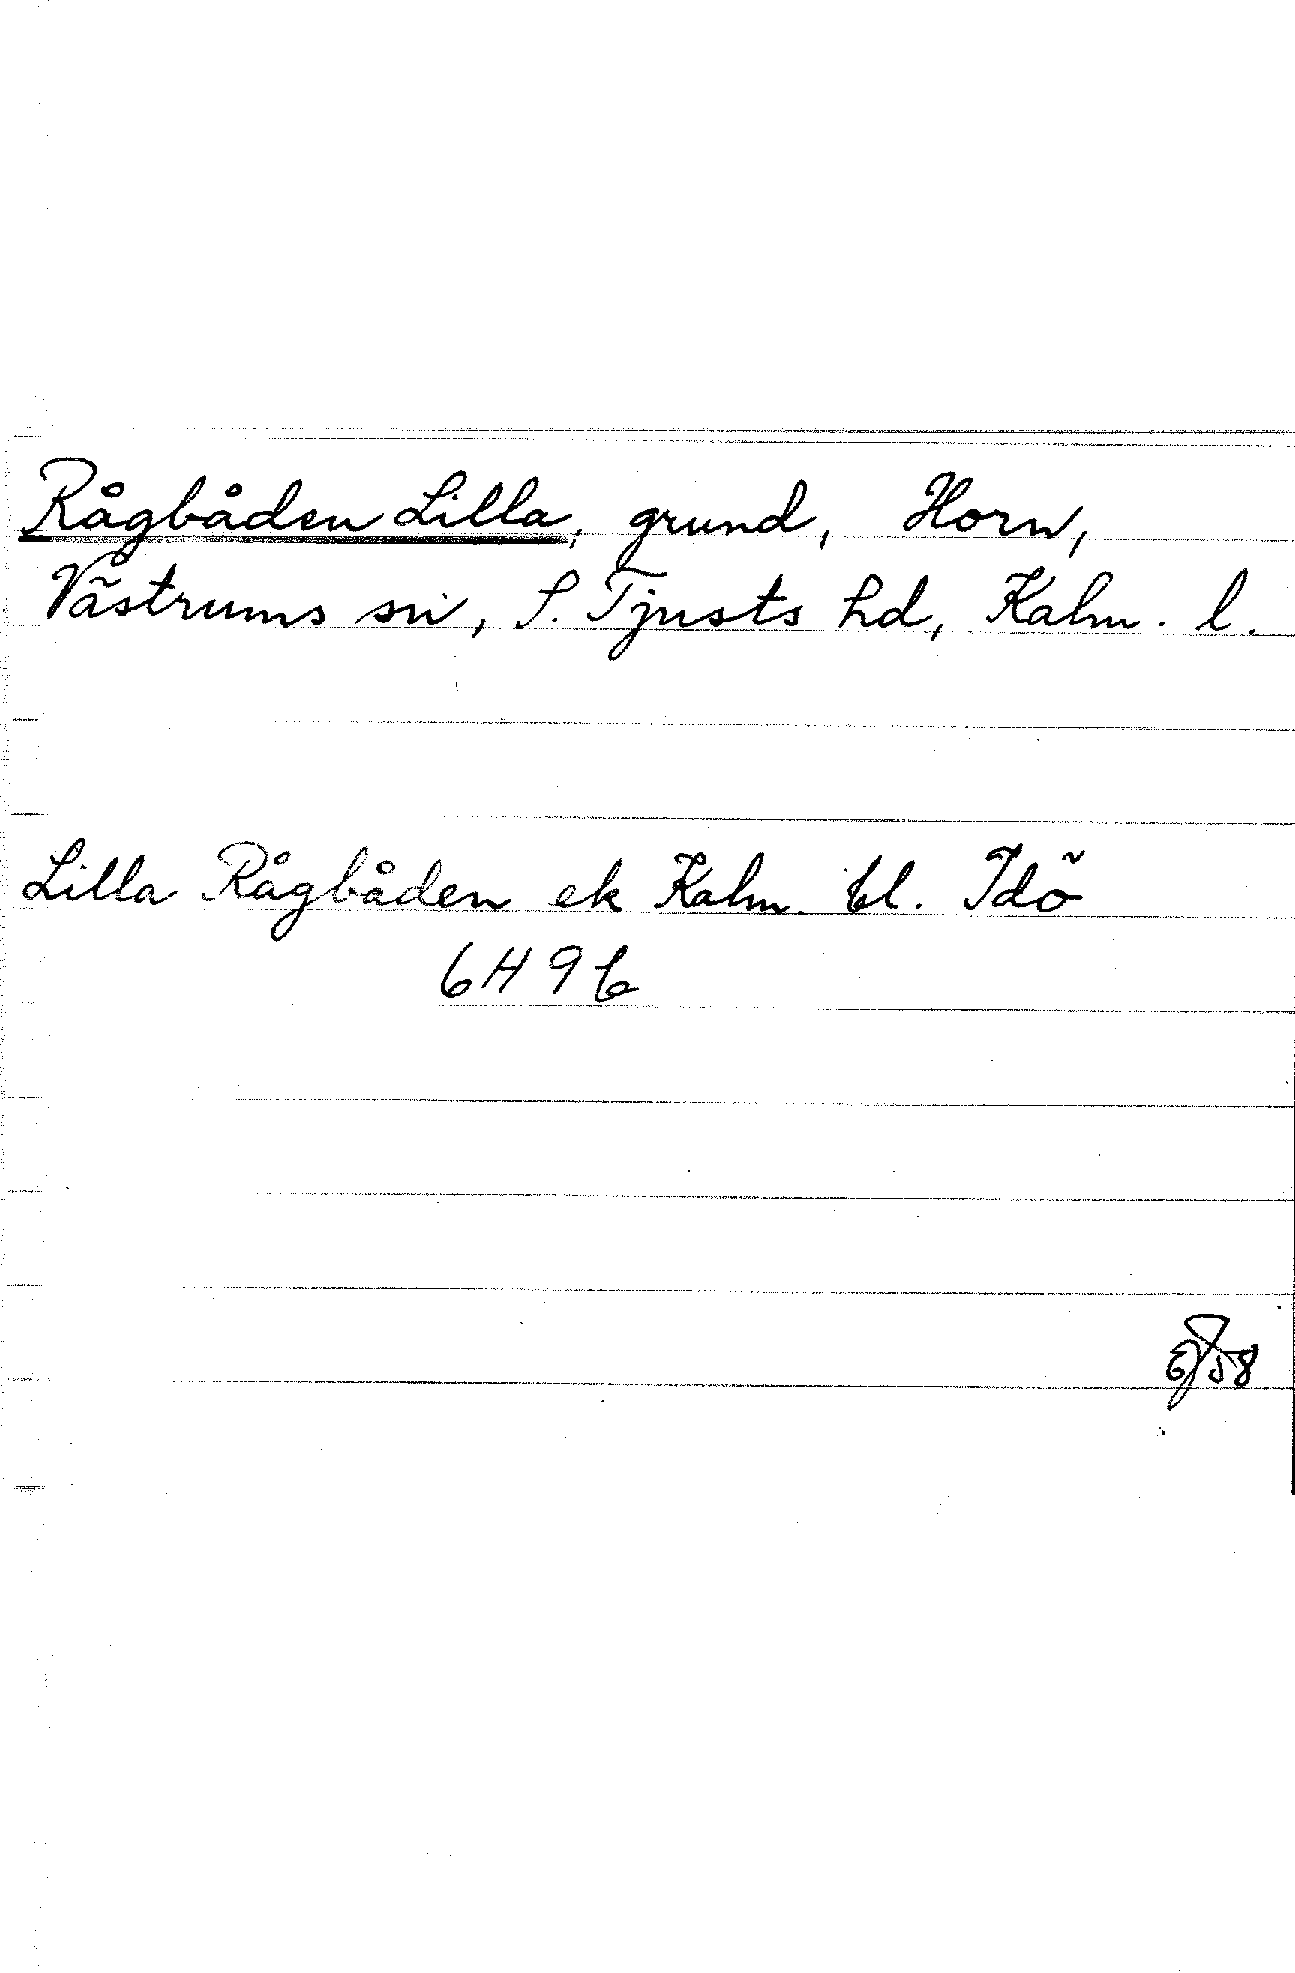 Rågbåden Lilla, grund, Horn,
Västrums sn, S. Tjusts hd, Kalm. l.
Lilla Rågbåden ek Kalm. bl. Idö
6H 9b